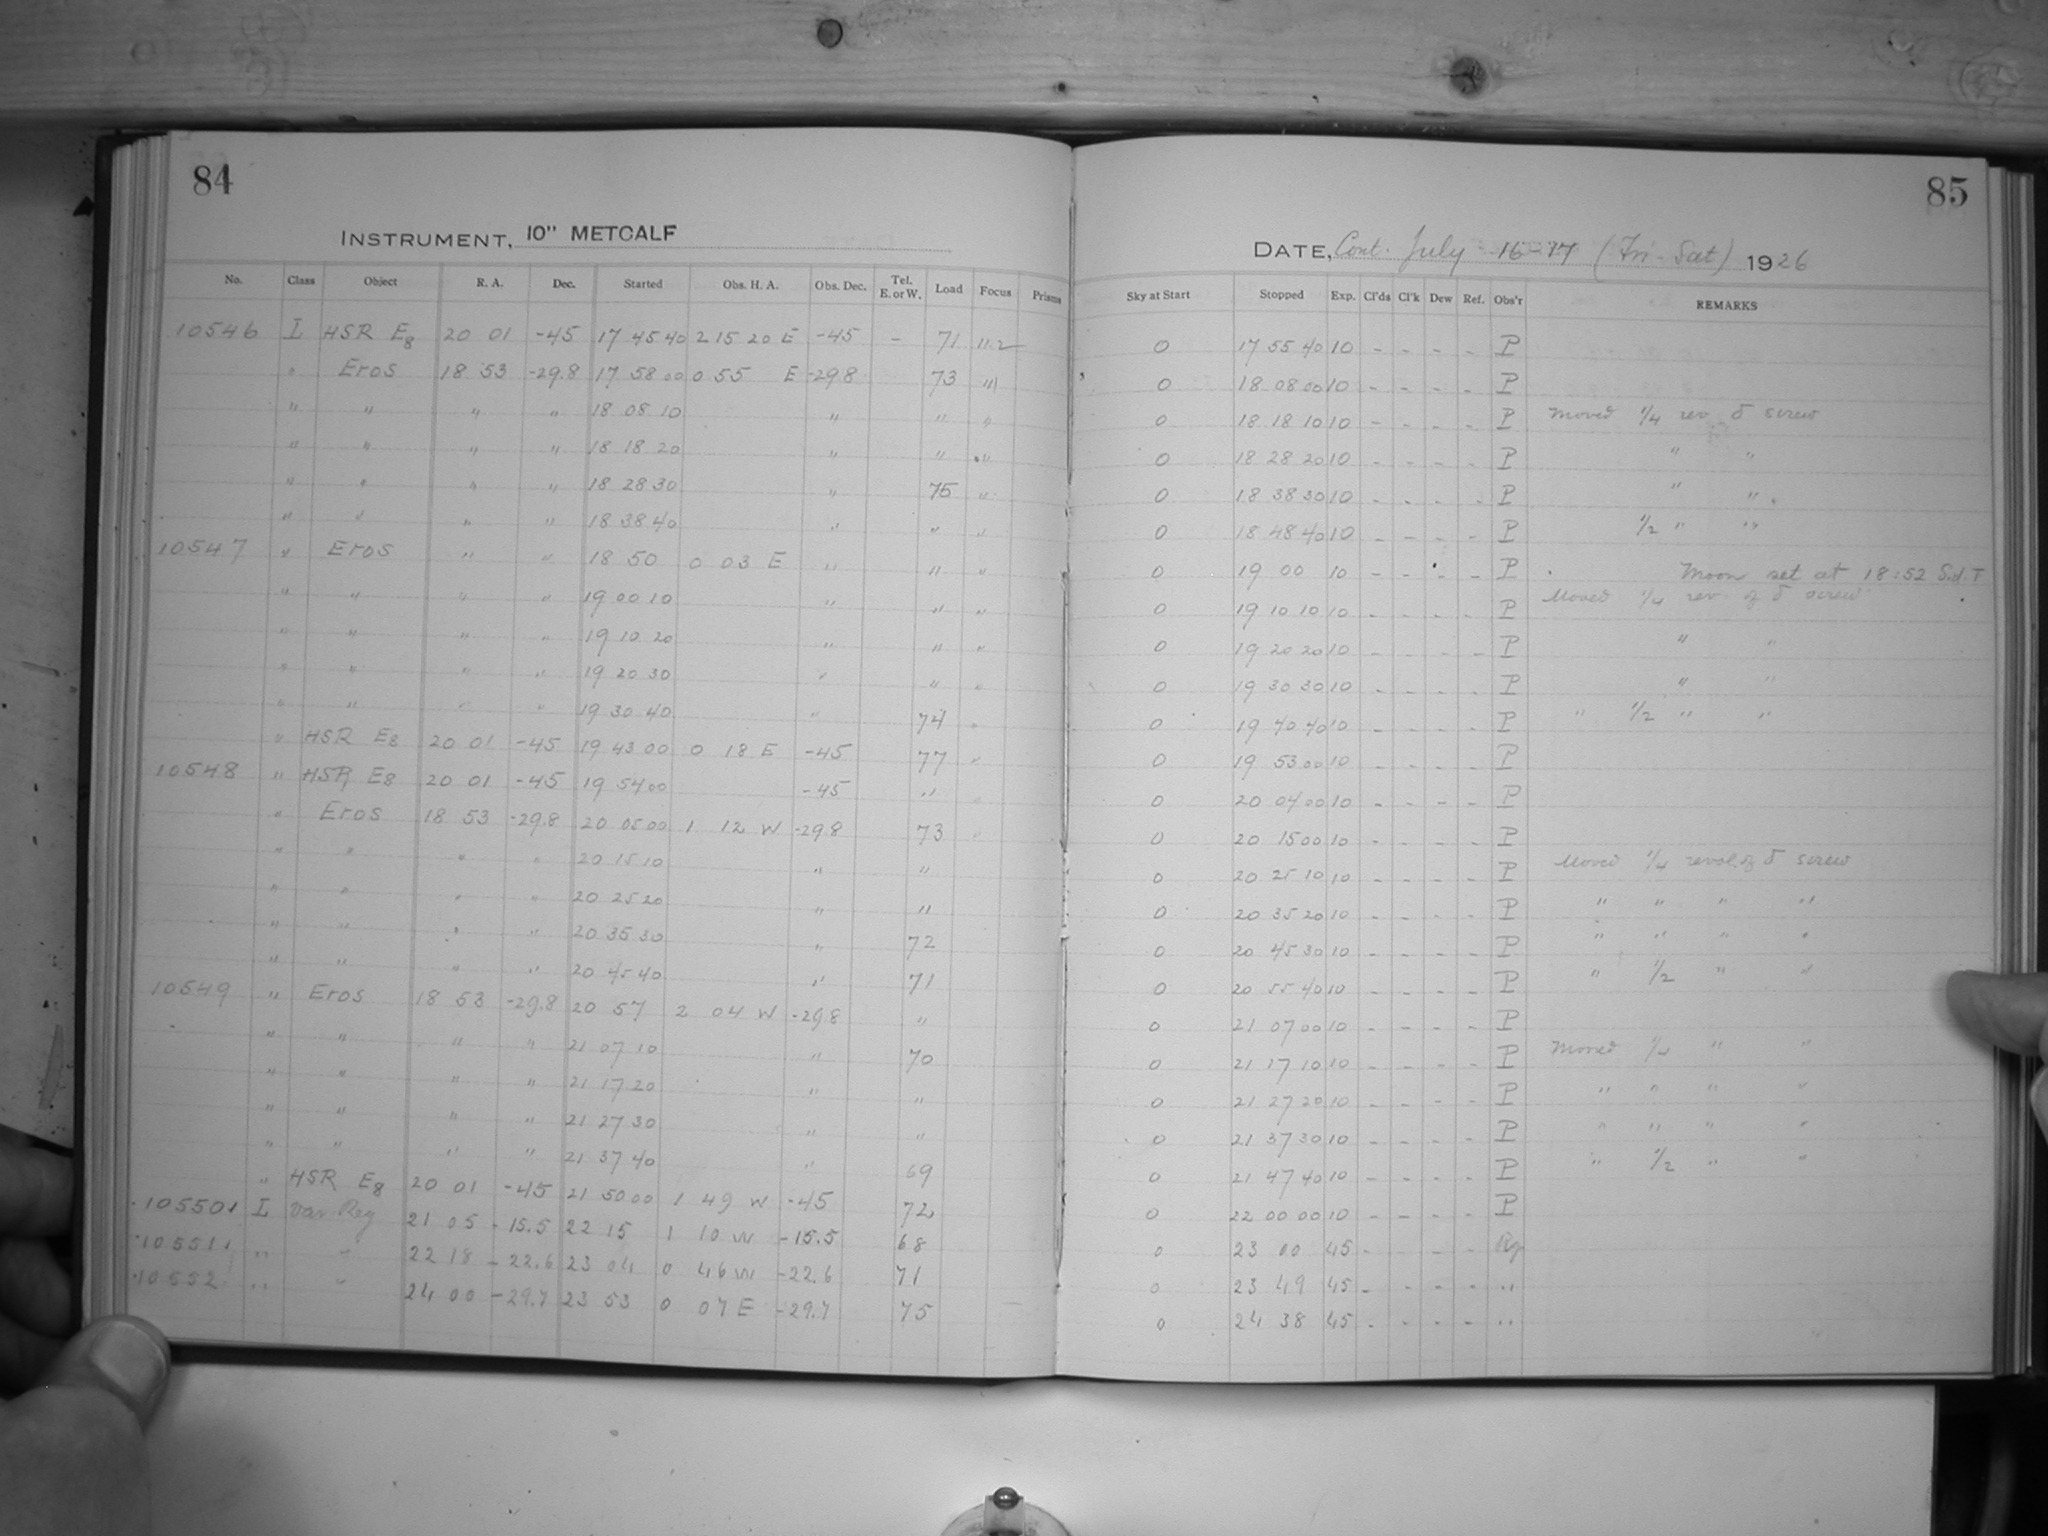 84
INSTRUMENT, 10" METCALF
No. Class Object R. A. Dec. Started Obs. H. A. Obs. Dec. Tel. E. or W. Load Focus Prisms
10546 I HSR E8 20 01 -45 17 45 40 2 15 20 E -45 - 71 11.2
" Eros 18 53 -29.8 17 58 00 0 55 E -29.8 73 "
" " " " 18 08 10 " " "
" " " " 18 18 20 " " "
" " " " 18 28 30 " 75 "
" " " " 18 38 40 " " "
10547 " Eros " " 18 50 0 03 E " " "
" " " " 19 00 10 " " "
" " " " 19 10 20 " " "
" " " " 19 20 30 " " "
" " " " 19 30 40 " 74 "
" HSR E8 20 01 -45 19 43 00 0 18 E -45 77 "
10548 " HSR E8 20 01 -45 19 54 00 -45 " "
" Eros 18 53 -29.8 20 05 00 1 12 W -29.8 73 "
" " " " 20 15 10 " "
" " " " 20 25 20 " "
" " " " 20 35 30 " 72
" " " " 20 45 40 " 71
10549 " Eros 18 53 -29.8 20 57 2 04 W -29.8 "
" " " " 21 07 10 " 70
" " " " 21 17 20 " "
" " " " 21 27 30 " "
" " " " 21 37 40 " 69
" HSR E8 20 01 -45 21 50 00 1 49 W -45 72
10550 I Var Reg 21 05 -15.5 22 15 1 10 W -15.5 68
10551 " " 22 18 -22.6 23 04 0 46 W -22.6 71
10552 " " 24 00 -29.7 23 53 0 07 E -29.7 75
85
DATE, Cont. July 16-17 (Fri-Sat) 1926
Sky at Start Stopped Exp. Cl'ds Cl'k Dew Ref. Obs'r REMARKS
0 17 55 40 10 - - - - P
0 18 08 00 10 - - - - P
0 18 18 10 10 - - - - P Moved 1/4 rev δ screw
0 18 28 20 10 - - - - P " "
0 18 38 30 10 - - - - P " "
0 18 48 40 10 - - - - P 1/2 " "
0 19 00 10 - - - - P Moon set at 18:52 Sid. T
0 19 10 10 10 - - - - P Moved 1/4 rev of δ screw
0 19 20 20 10 - - - - P " "
0 19 30 30 10 - - - - P " "
0 19 40 40 10 - - - - P " 1/2 " "
0 19 53 00 10 - - - - P
0 20 04 00 10 - - - - P
0 20 15 00 10 - - - - P
0 20 25 10 10 - - - - P Moved 1/4 revol of δ screw
0 20 35 20 10 - - - - P " " " "
0 20 45 30 10 - - - - P " " " "
0 20 55 40 10 - - - - P " 1/2 " "
0 21 07 00 10 - - - - P
0 21 17 10 10 - - - - P Moved 1/4 " "
0 21 27 20 10 - - - - P " " " "
0 21 37 30 10 - - - - P " " " "
0 21 47 40 10 - - - - P " 1/2 " "
0 22 00 00 10 - - - - P
0 23 00 45 - - - -
0 23 49 45 - - - - "
0 24 38 45 - - - - "